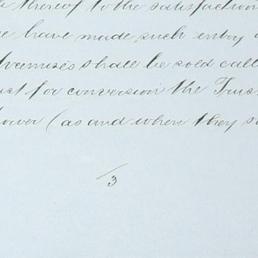 thereof to the satisfaction
have made such entry
Premises shall be sold call
for conversion the Trus
power (as and when they s
3